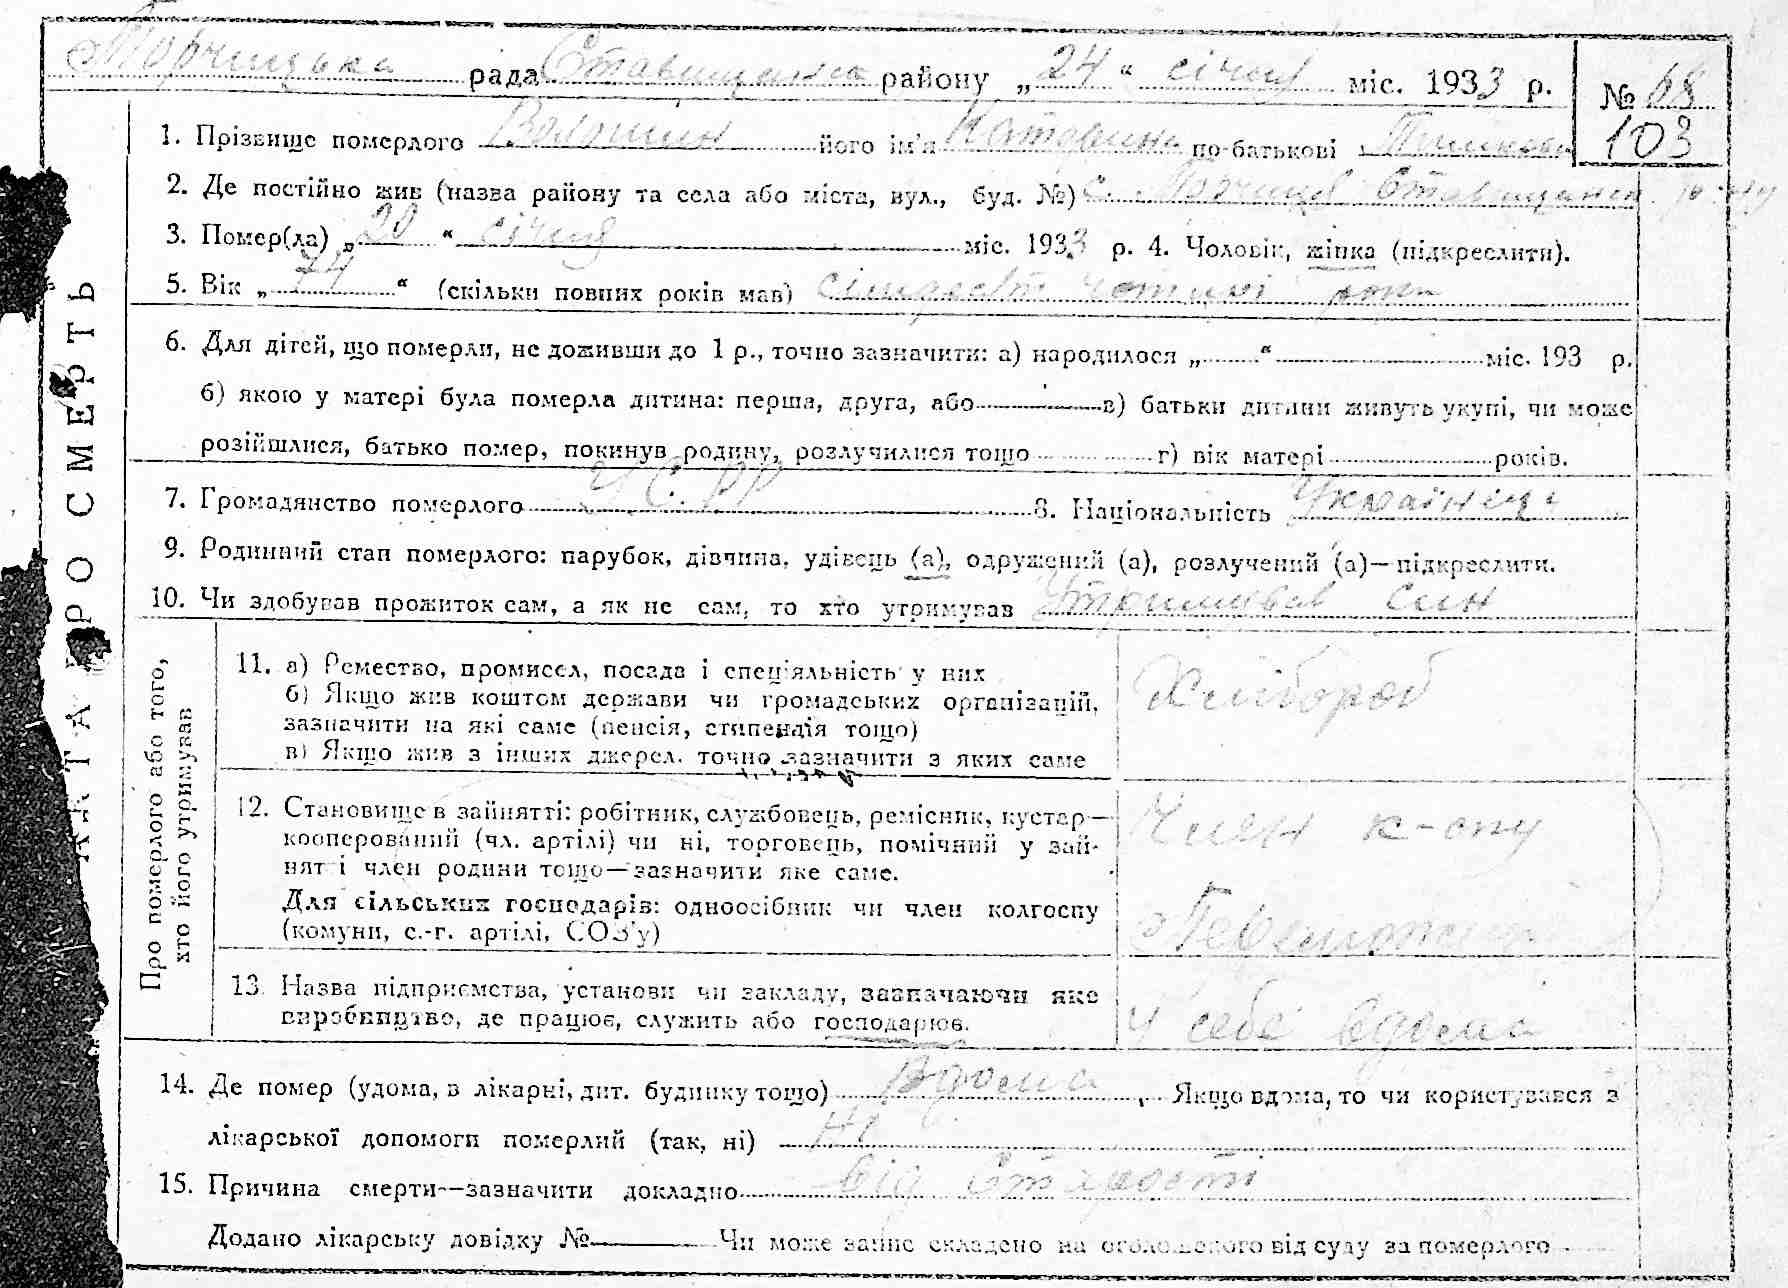 Торчицька рада Ставищансько району „24“ січня міс. 1933 р. № 68
103
1. Прізвище померлого Волошин його ім'я Катерина по-батькові
2. Де постійно жив (назва району та села або міста, вул., буд. №) с. Торчиця Ставищанск р-ну
3. Помер(ла) „20“ січня міс. 1933 р. 4. Чоловік, жінка (підкреслити).
5. Вік „74“ (скільки повних років мав) сімдесят чотирі роки
6. Для дітей, що померли, не доживши до 1 р., точно зазначити: а) народилося „ “ міс. 193 р.
б) якою у матері була померла дитина: перша, друга, або в) батьки дитини живуть укупі, чи може
розійшлися, батько помер, покинув родину, розлучилися тощо г) вік матері років.
7. Громадянство померлого УСРР 8. Національність Українець
9. Родинний стан померлого: парубок, дівчина, удівець (а), одружений (а), розлучений (а)—підкреслити.
10. Чи здобував прожиток сам, а як не сам, то хто утримував Утримував син
АКТ ПРО СМЕРТЬ
Про померлого або того,
хто його утримував
11. а) Ремество, промисел, посада і спеціяльність у них
б) Якщо жив коштом держави чи громадських організацій,
зазначити на які саме (пенсія, стипендія тощо)
в) Якщо жив з інших джерел, точно зазначити з яких саме
Хлібороб
12. Становище в зайнятті: робітник, службовець, ремісник, кустар—
кооперований (чл. артілі) чи ні, торговець, помічний у зай-
нятті член родини тощо—зазначити яке саме.
Для сільських господарів: одноосібник чи член колгоспу
(комуни, с.-г. артілі, СОЗ'у)
Член к-спу
13. Назва підприємства, установи чи закладу, зазначаючи яке
виробництво, де працює, служить або господарює.
У себе вдома
14. Де помер (удома, в лікарні, дит. будинку тощо) Вдома. Якщо вдома, то чи користувався з
лікарської допомоги померлий (так, ні) Ні
15. Причина смерти—зазначити докладно від старості
Додано лікарську довідку № Чи може запис складено на оголошеного від суду за померлого